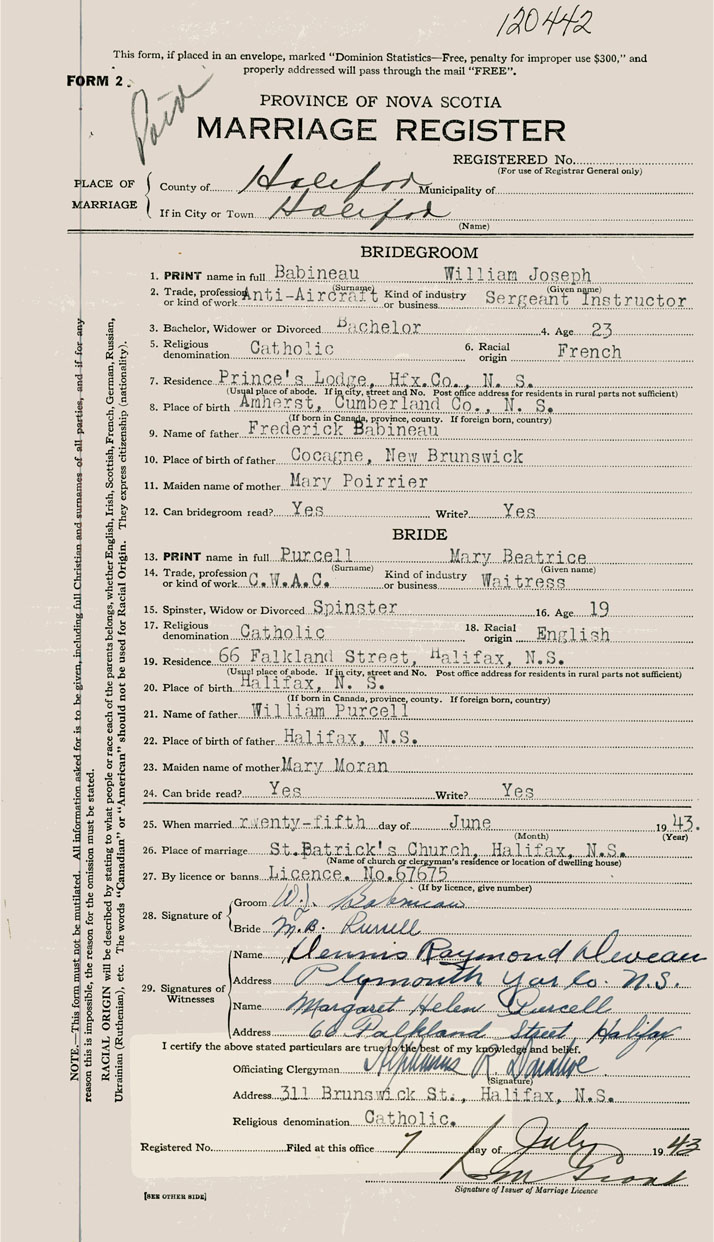 120442
This form, if placed in an envelope, marked "Dominion Statistics—Free, penalty for improper use $300," and
properly addressed will pass through the mail "FREE".
FORM 2.
Paid
PROVINCE OF NOVA SCOTIA
MARRIAGE REGISTER
REGISTERED No.
(For use of Registrar General only)
PLACE OF MARRIAGE
County of Halifax Municipality of
If in City or Town Halifax
(Name)
BRIDEGROOM
1. PRINT name in full Babineau William Joseph
(Surname) (Given name)
2. Trade, profession or kind of work Anti-Aircraft Kind of industry or business Sergeant Instructor
3. Bachelor, Widower or Divorced Bachelor 4. Age 23
5. Religious denomination Catholic 6. Racial origin French
7. Residence Prince's Lodge, Hfx.Co., N. S.
(Usual place of abode. If in city, street and No. Post office address for residents in rural parts not sufficient)
8. Place of birth Amherst, Cumberland Co., N. S.
(If born in Canada, province, county. If foreign born, country)
9. Name of father Frederick Babineau
10. Place of birth of father Cocagne, New Brunswick
11. Maiden name of mother Mary Poirrier
12. Can bridegroom read? Yes Write? Yes
BRIDE
13. PRINT name in full Purcell Mary Beatrice
(Surname) (Given name)
14. Trade, profession or kind of work C.W.A.C. Kind of industry or business Waitress
15. Spinster, Widow or Divorced Spinster 16. Age 19
17. Religious denomination Catholic 18. Racial origin English
19. Residence 66 Falkland Street, Halifax, N.S.
(Usual place of abode. If in city, street and No. Post office address for residents in rural parts not sufficient)
20. Place of birth Halifax, N. S.
(If born in Canada, province, county. If foreign born, country)
21. Name of father William Purcell
22. Place of birth of father Halifax, N.S.
23. Maiden name of mother Mary Moran
24. Can bride read? Yes Write? Yes
25. When married twenty-fifth day of June 1943.
(Month) (Year)
26. Place of marriage St.Patrick's Church, Halifax, N.S.
(Name of church or clergyman's residence or location of dwelling house)
27. By licence or banns Licence. No.67675
(If by licence, give number)
28. Signature of
Groom W.J. Babineau
Bride M.B. Purcell
29. Signatures of Witnesses
Name Dennis Raymond Deveau
Address Plymouth Yar Co. N.S.
Name Margaret Helen Purcell
Address 66 Falkland Street, Halifax
I certify the above stated particulars are true to the best of my knowledge and belief.
Officiating Clergyman R.
(Signature)
Address 311 Brunswick St., Halifax, N.S.
Religious denomination Catholic.
Registered No. Filed at this office 7 day of July 1943
Signature of Issuer of Marriage Licence
[SEE OTHER SIDE]
NOTE.—This form must not be mutilated. All information asked for is to be given, including full Christian and surnames of all parties, and if for any
reason this is impossible, the reason for the omission must be stated.
RACIAL ORIGIN will be described by stating to what people or race each of the parents belongs, whether English, Irish, Scottish, French, German, Russian,
Ukrainian (Ruthenian), etc. The words "Canadian" or "American" should not be used for Racial Origin. They express citizenship (nationality).